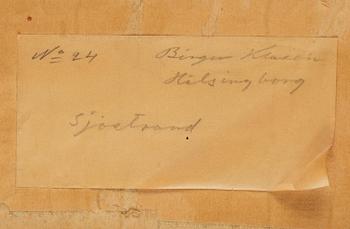 No 24
Birger
Helsingborg
Sjöstrand